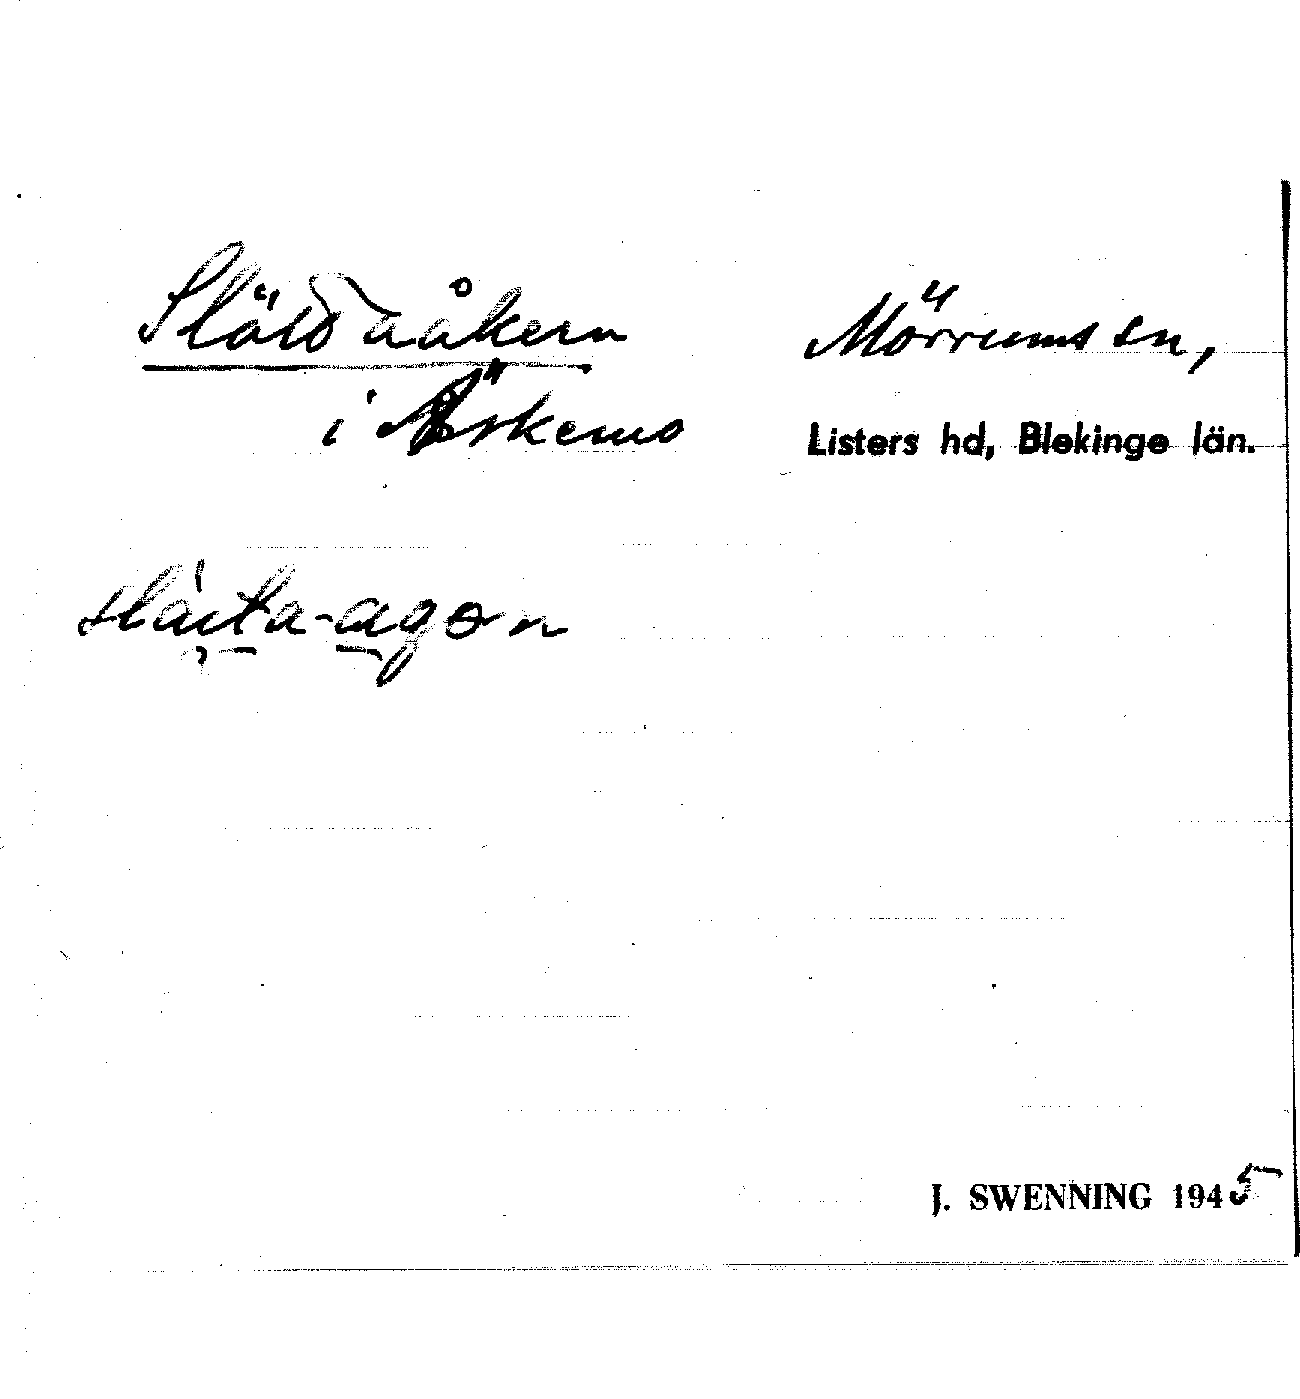 Slöidaåkern
i Äskemo
Mörrums sn,
Listers hd, Blekinge län.
J. SWENNING 1945